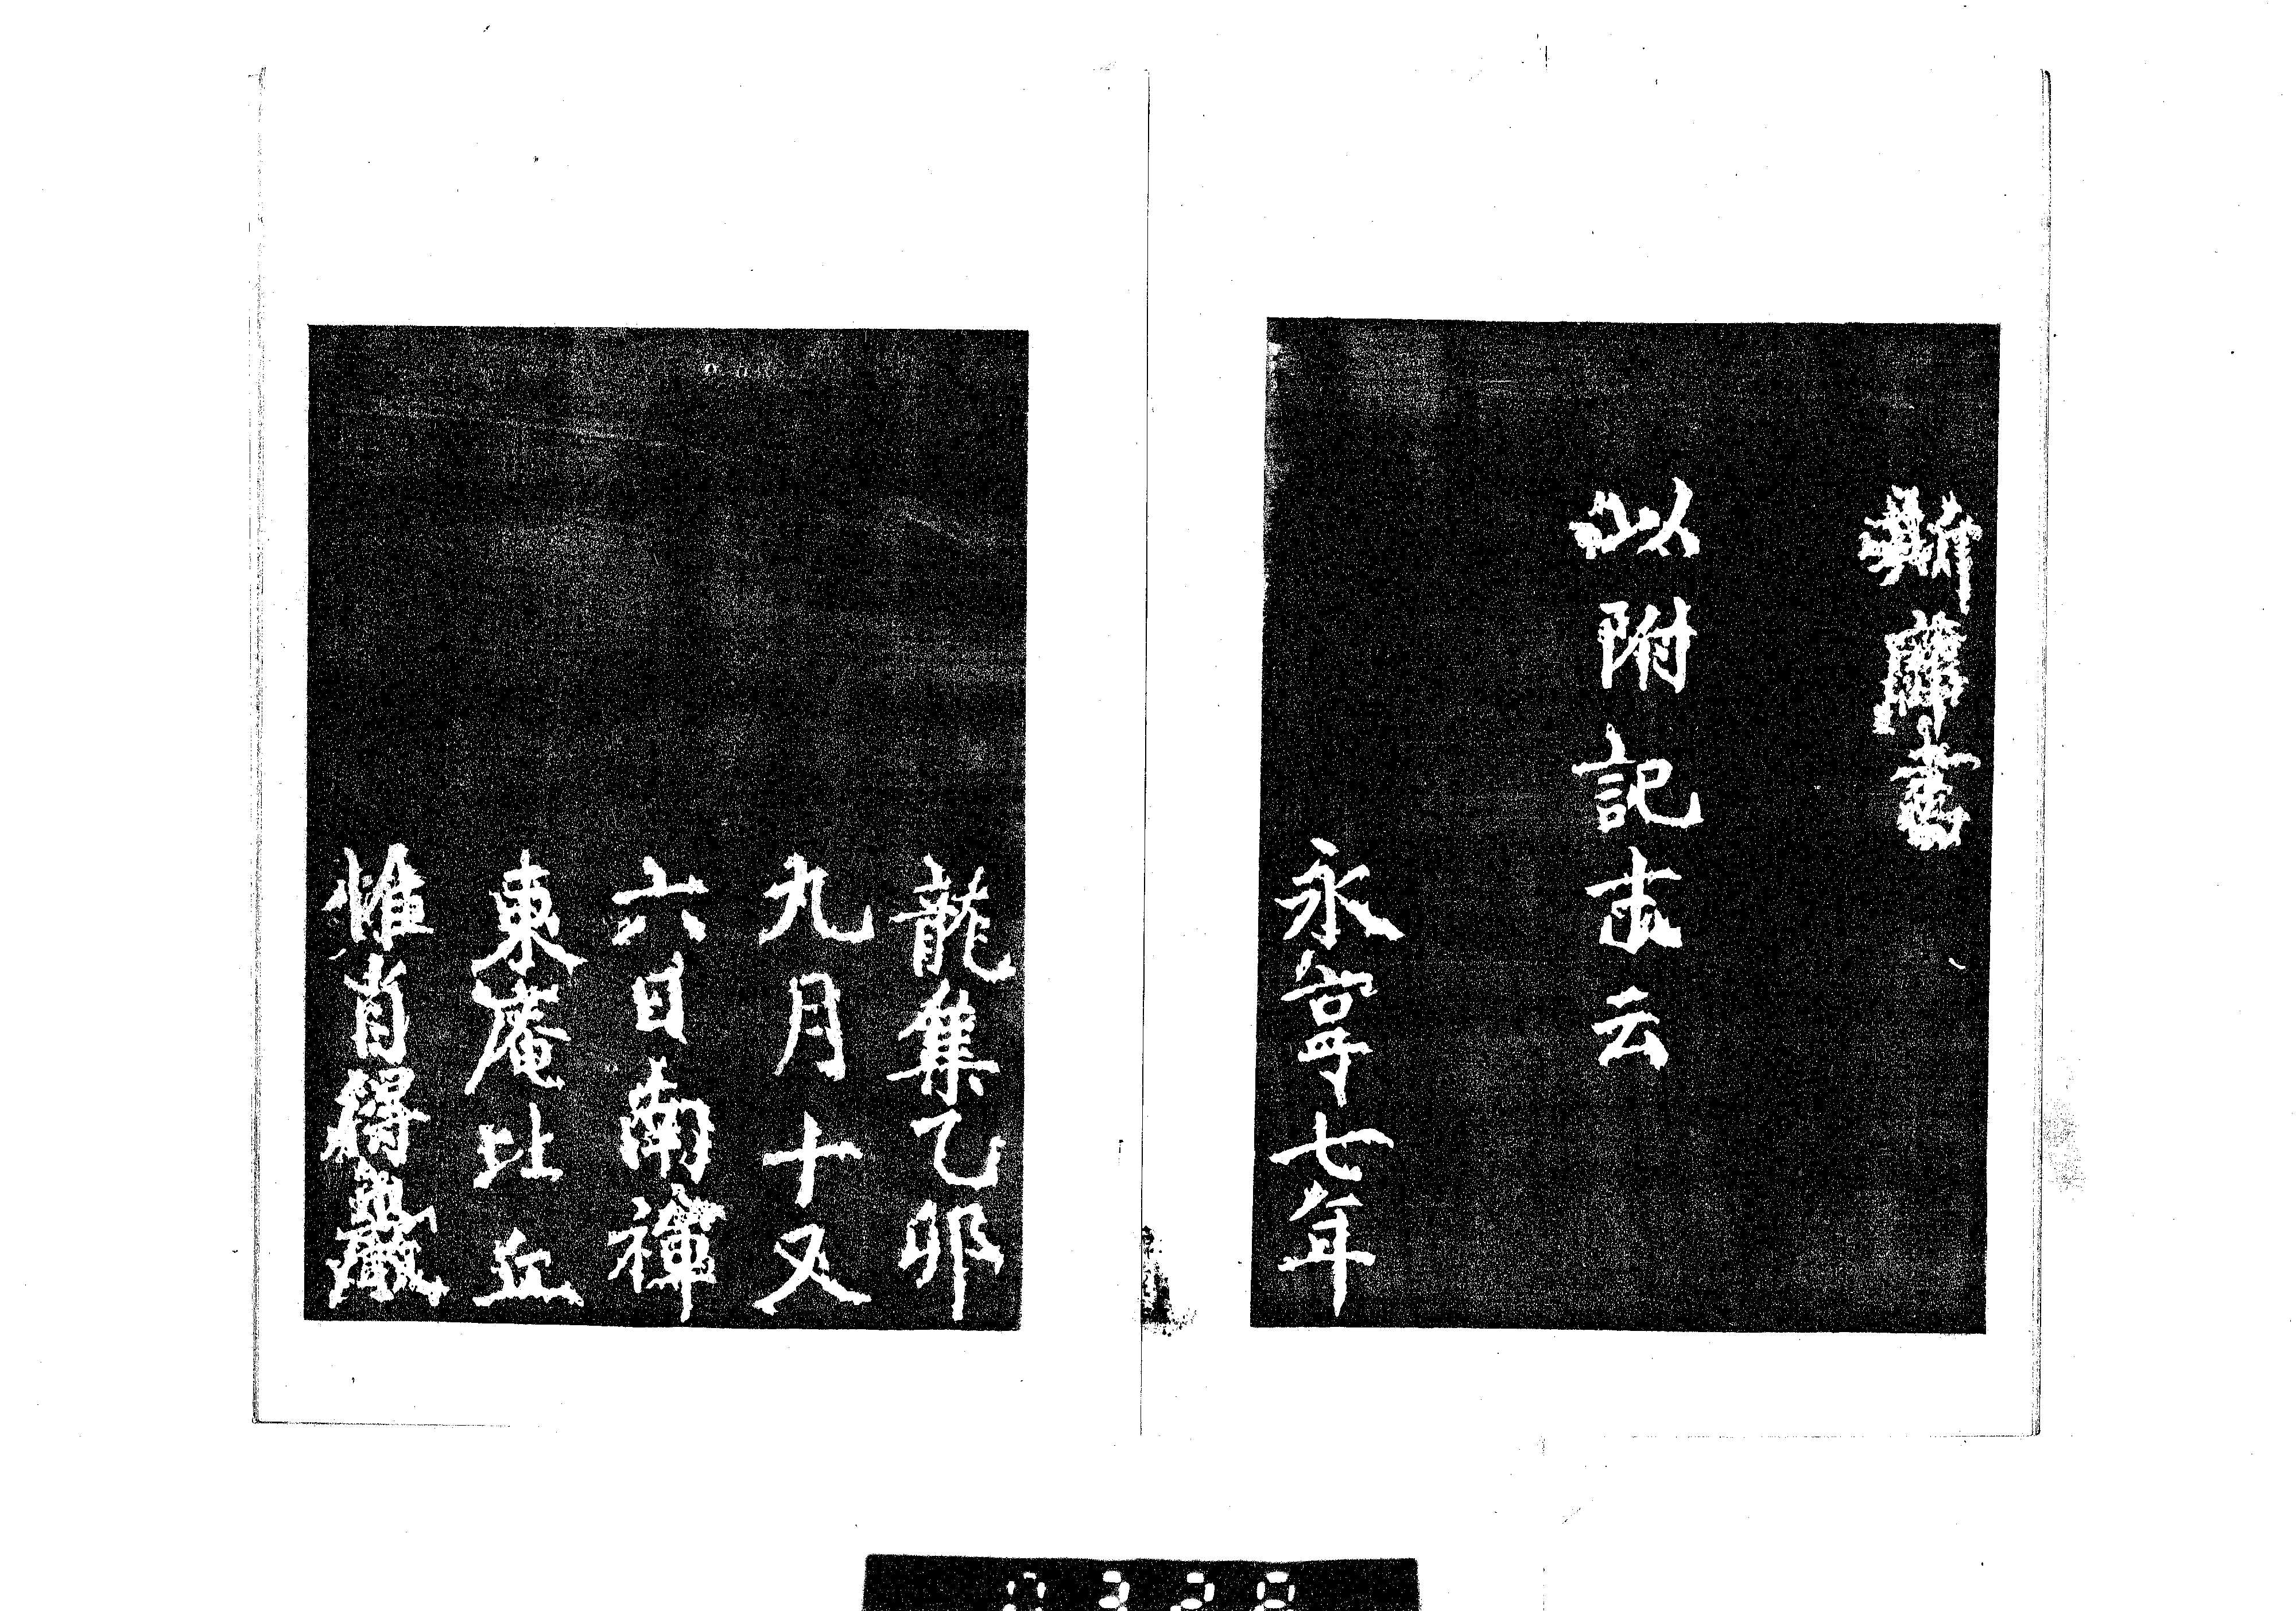 斯
以附記述云
永享七年
龍集乙卯
九月十又
六日南禪
東庵比丘
惟肖得巖